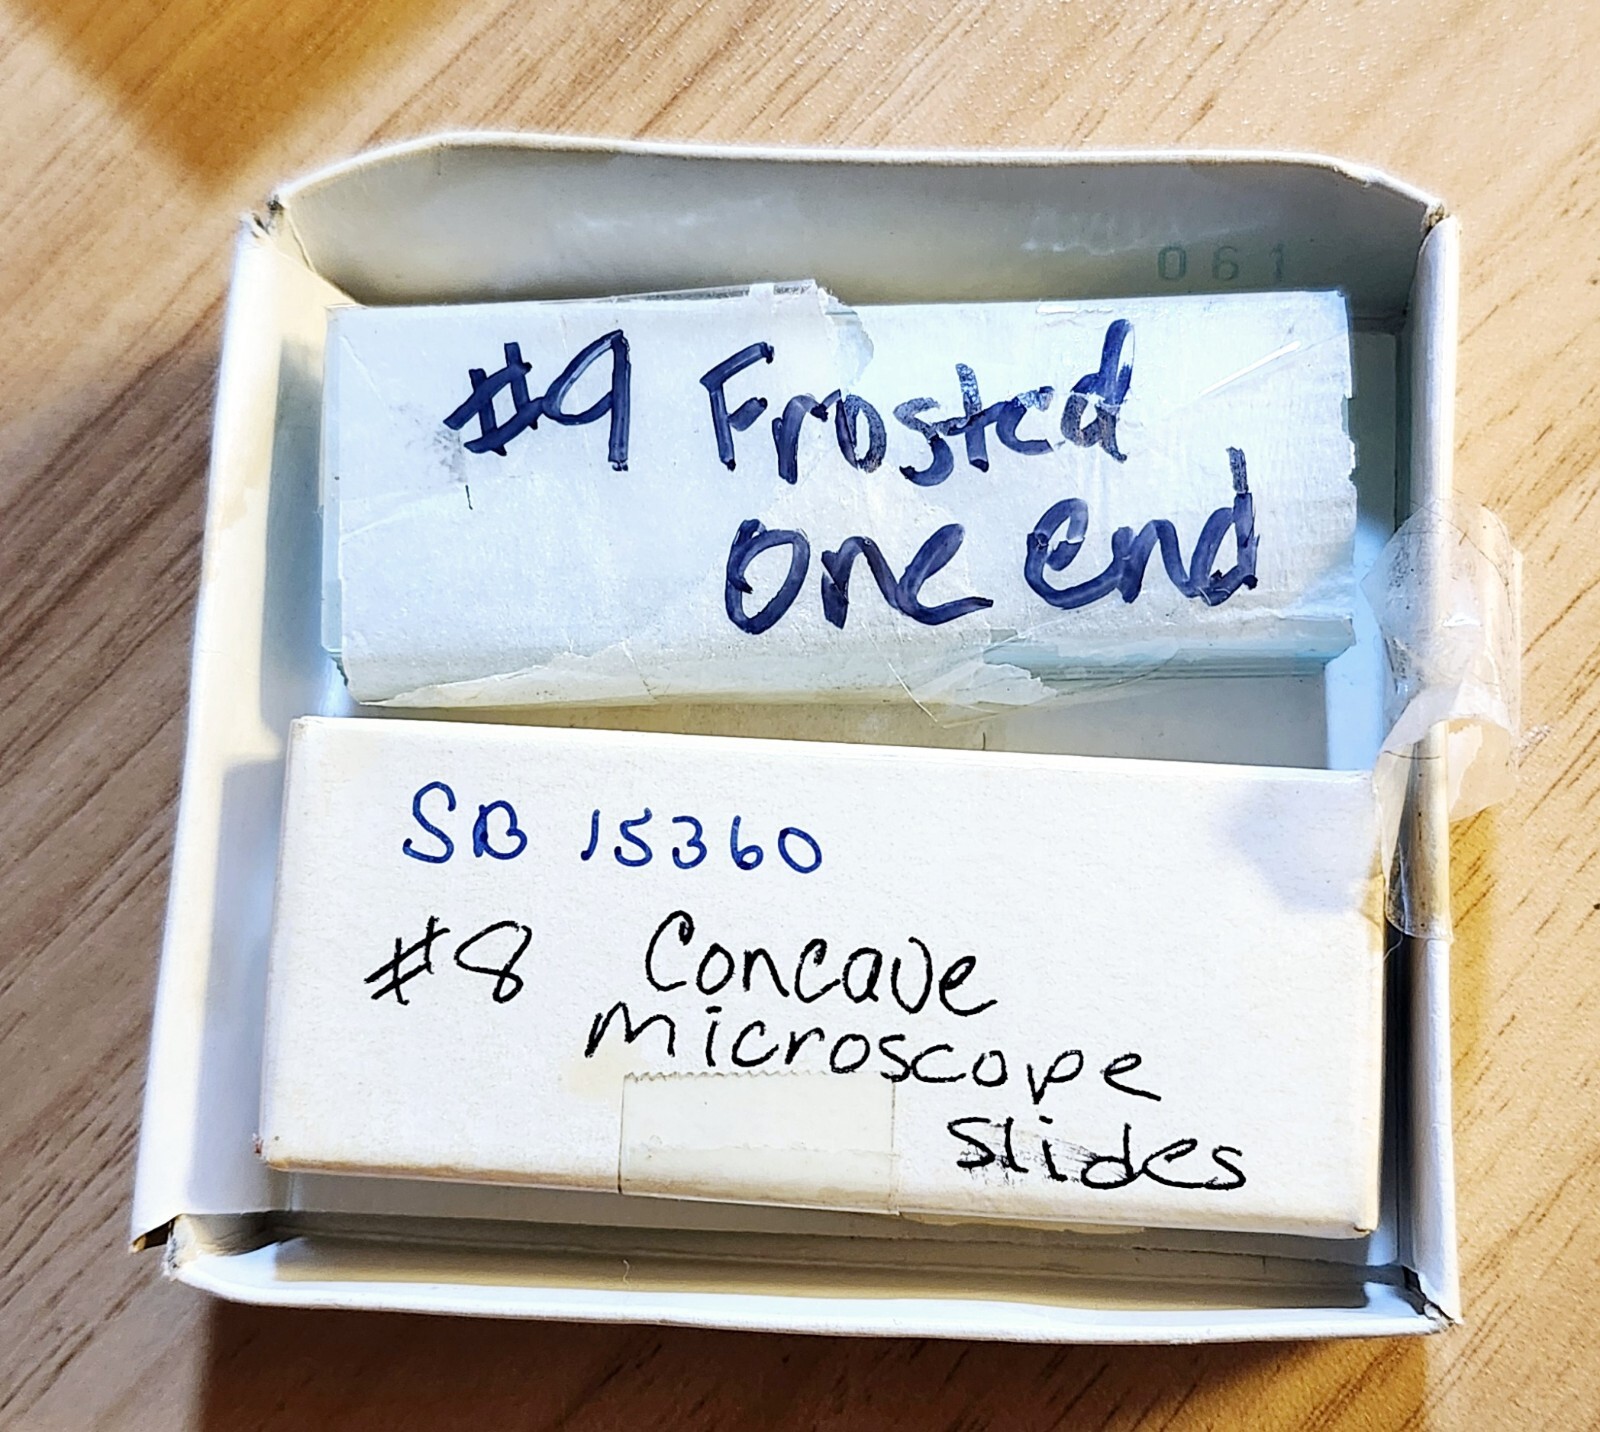 061
#9 Frosted
one end
SB 15360
#8 Concave
microscope
slides